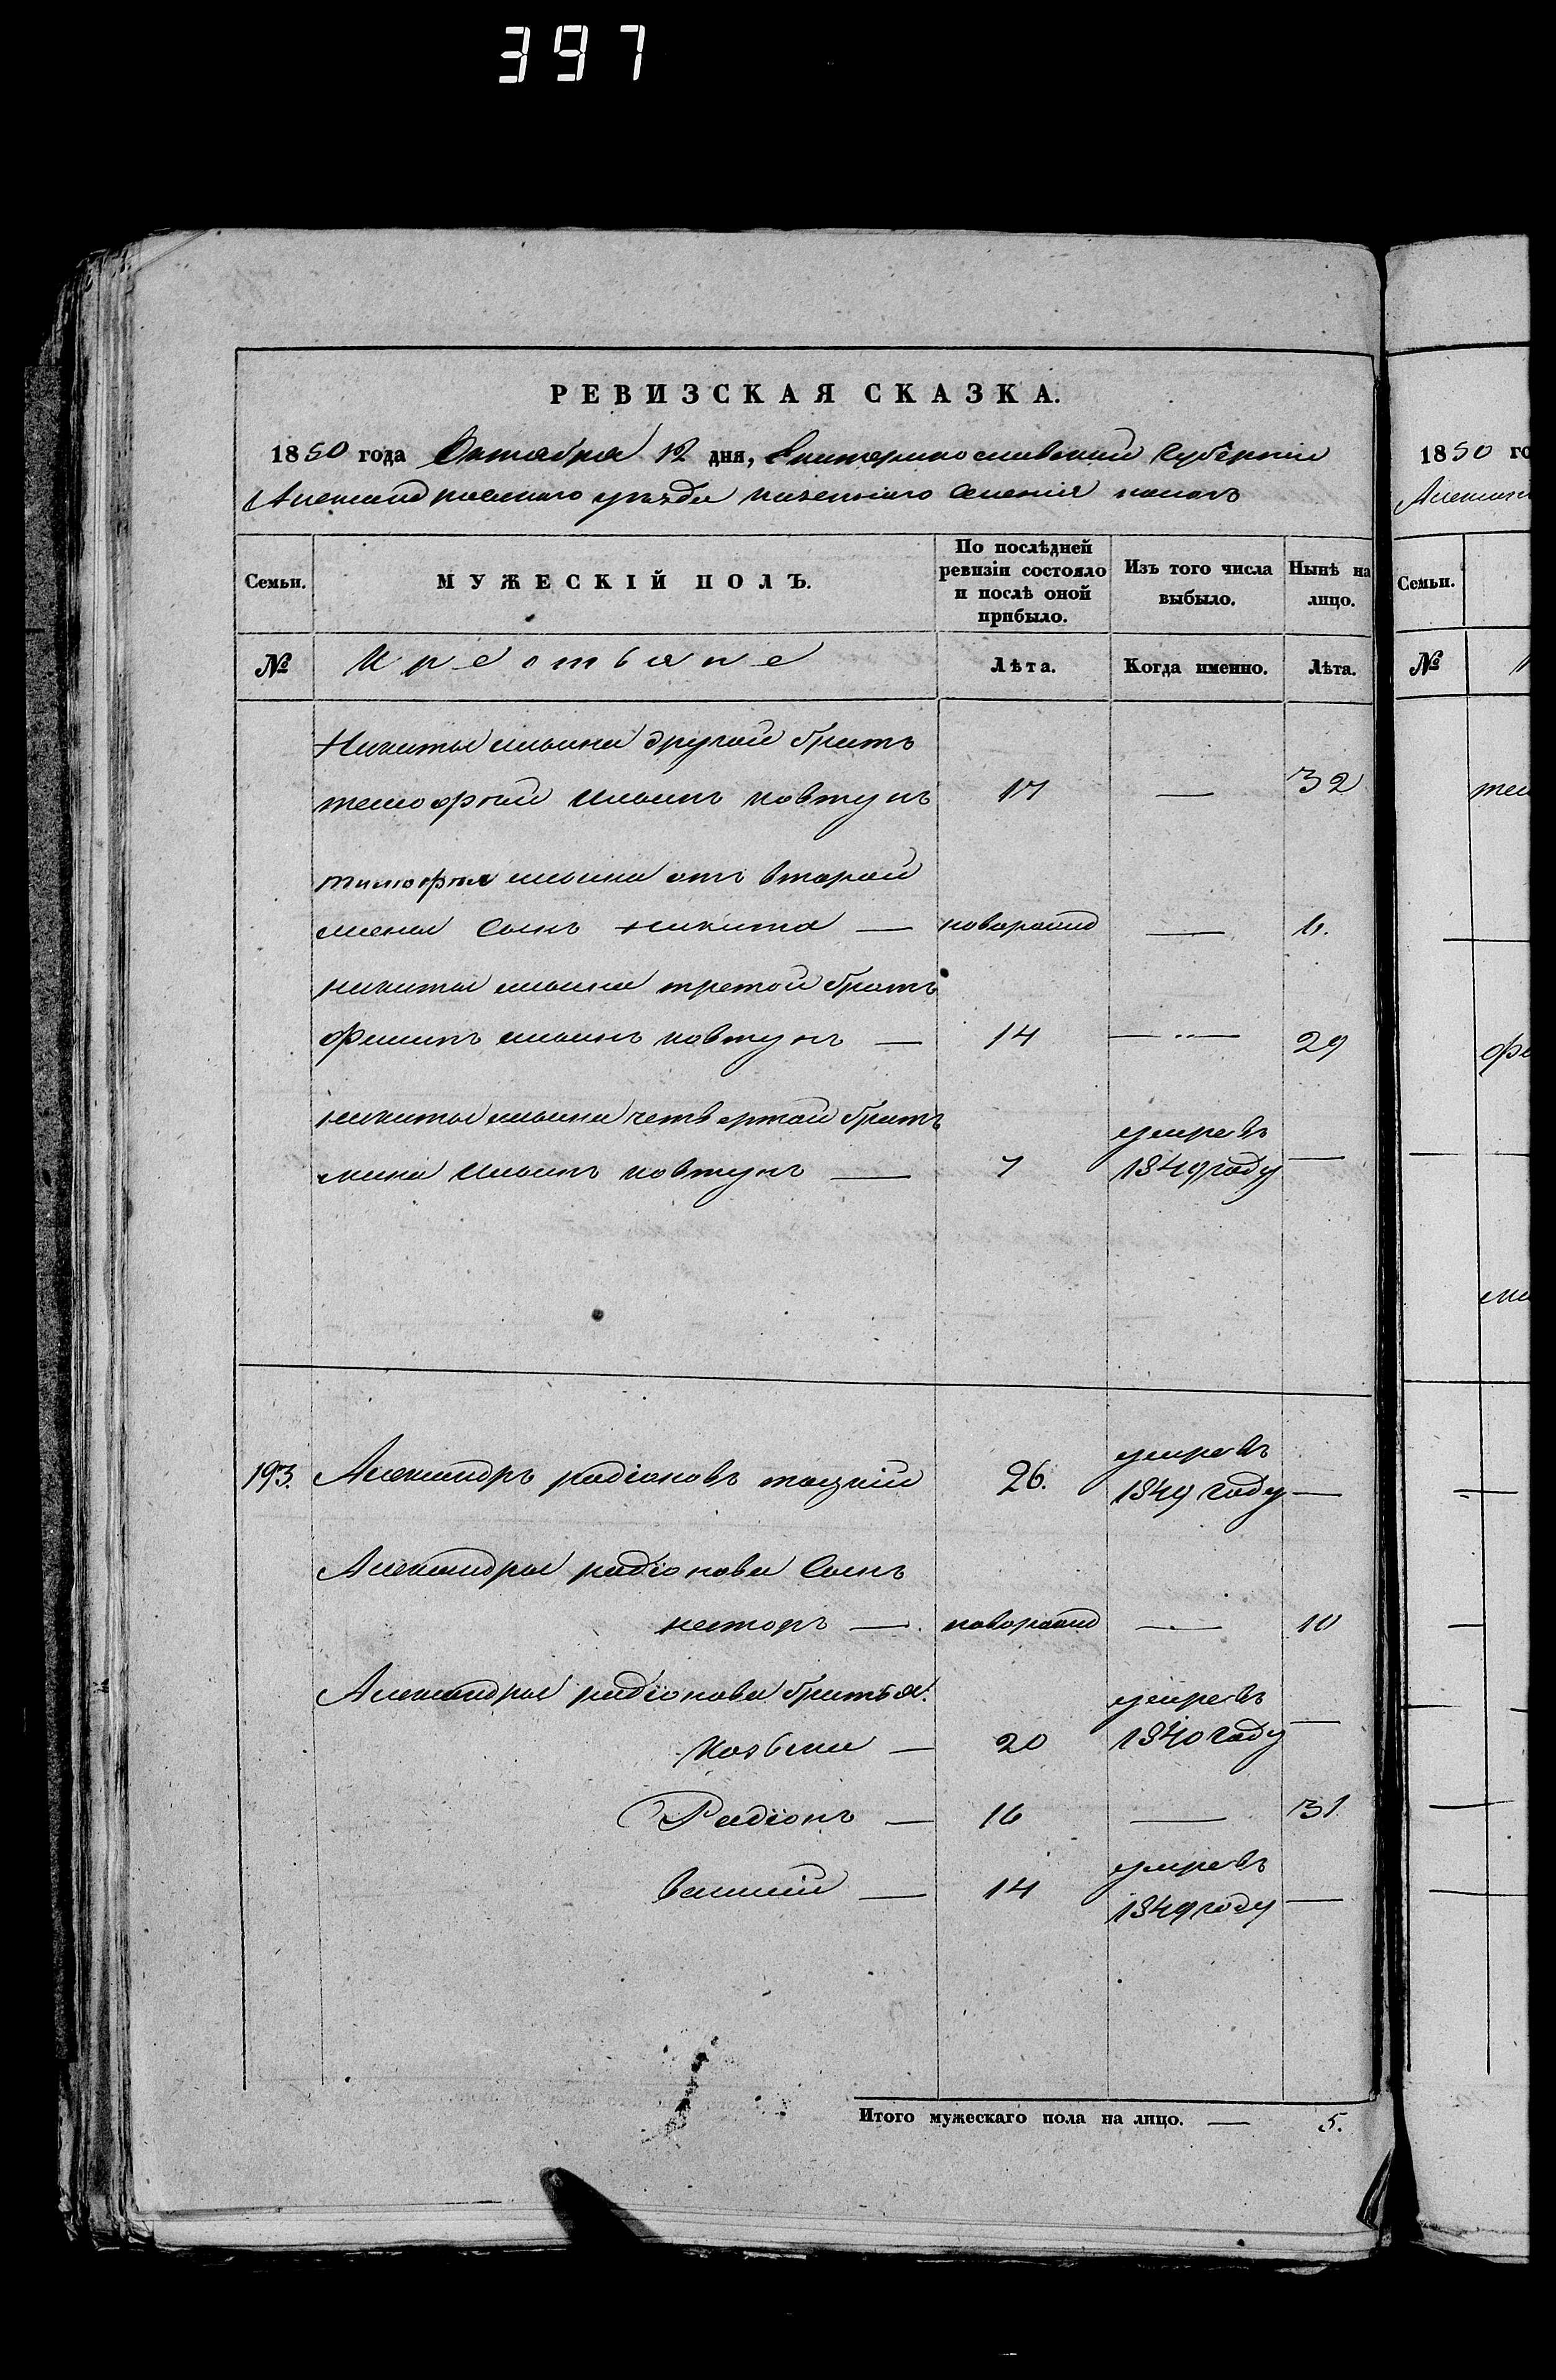 397
РЕВИЗСКАЯ СКАЗКА.
1850 года Октября 12 дня, Екатеринославской Губернии
Александровского уезда казенного селения конскъ
Семьи. МУЖЕСКІЙ ПОЛЪ. По послѣдней ревизіи состояло и послѣ оной прибыло. Изъ того числа выбыло. Нынѣ на лицо.
№ Крестьяне Лѣта. Когда именно. Лѣта.
Никиты ильина другой братъ
темофей Ильинъ ковтунъ 17 — 32
тимофея ильина отъ второй
жены Сынъ никита — новорожд — 6.
никиты ильина третой братъ
филипъ ильинъ ковтунъ — 14 — 29
никиты ильина четвертой братъ
мина Ильинъ ковтунъ — 7 умре въ 1849 году —
193. Александръ радіоновъ тацкій 26. умре въ 1849 году —
Александры радіонова Сынъ
несторъ — новорожд — 10
Александры радіонова братья.
Козьма — 20 умре въ 1840 году —
Радіонъ — 16 — 31
василій — 14 умре въ 1849 году —
Итого мужескаго пола на лицо. — 5.
1850 го
Семьи.
№